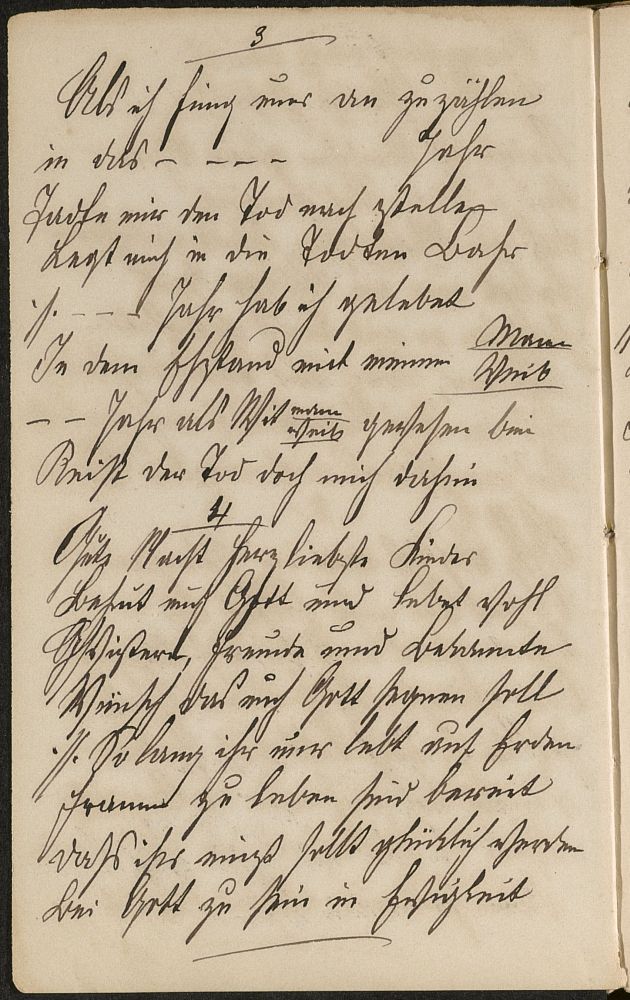 3
Als ich fing nur an zu zählen
in das – – – – Jahr
Tadte mir der Tod nach stellen
Legt mich in die Todten Bahr
:/: – – – Jahr hab ich gelebet
In dem Ehstand mit meinem Mann
Weib
– – Jahr als Wit mann gewesen bin
Weib
Reist der Tod doch mich dahin
4
Gute Nacht herzliebste Kinder
Behüt euch Gott und lebet wohl
Gschwistert, Freunde und Bekannte
Wünsch das euch Gott segnen soll
:/: So lang ihr nur lebt auf Erden
Fromm zu leben seid bereit
dass ihr einst sollt glücklich werden
Bei Gott zu sein in Ewigkeit